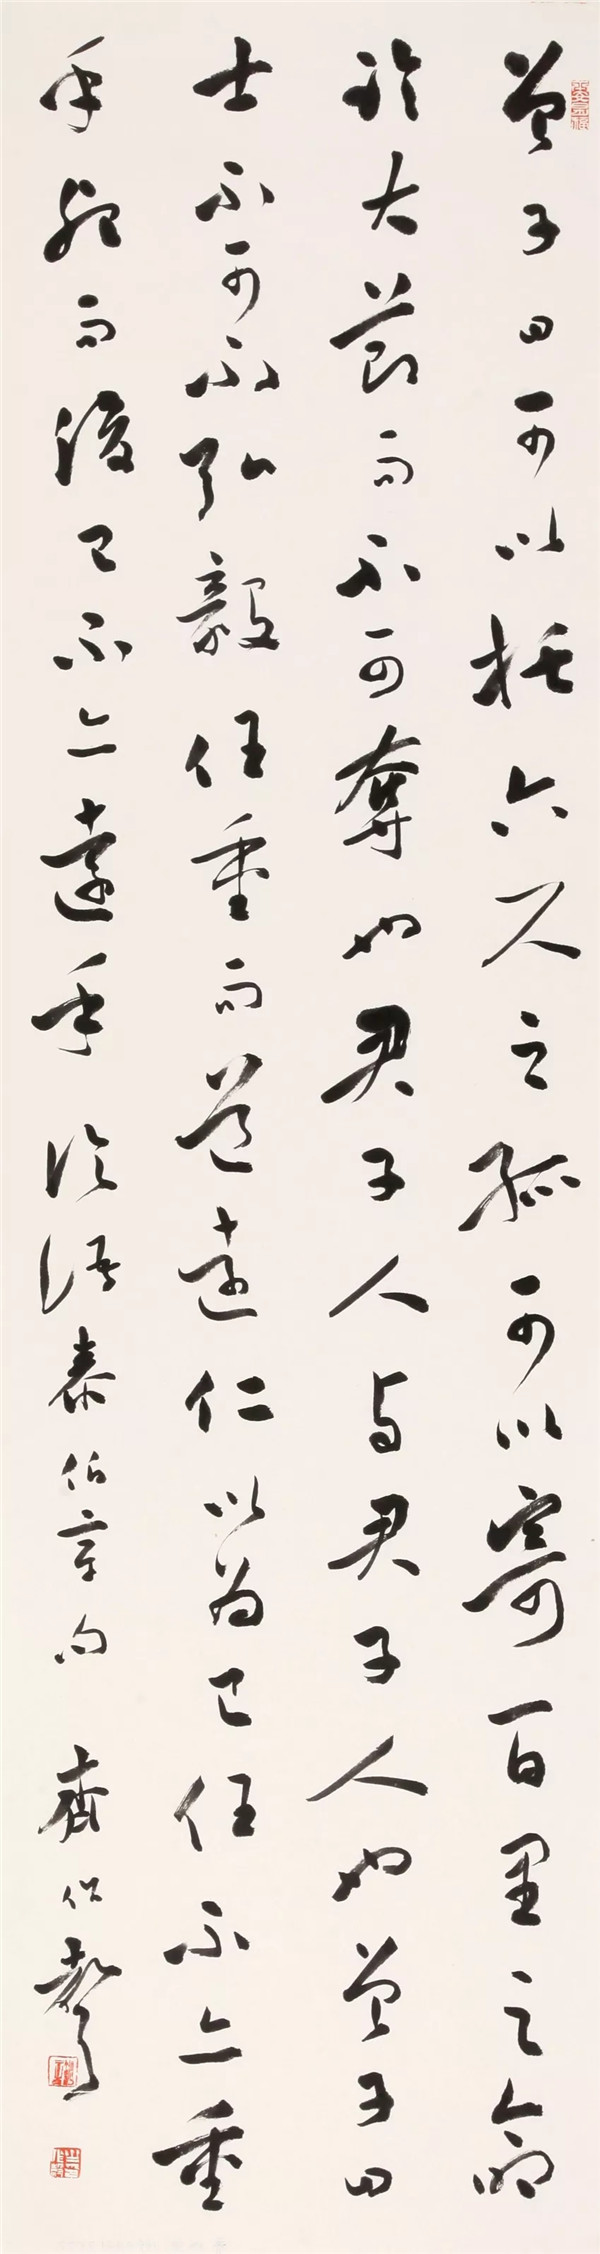 曾子曰可以托六尺之孤可以寄百里之命
臨大節而不可奪也君子人与君子人也曾子曰
士不可不弘毅任重而道遠仁以為己任不亦重
乎死而後已不亦遠乎 論語泰伯章句 齊作聲